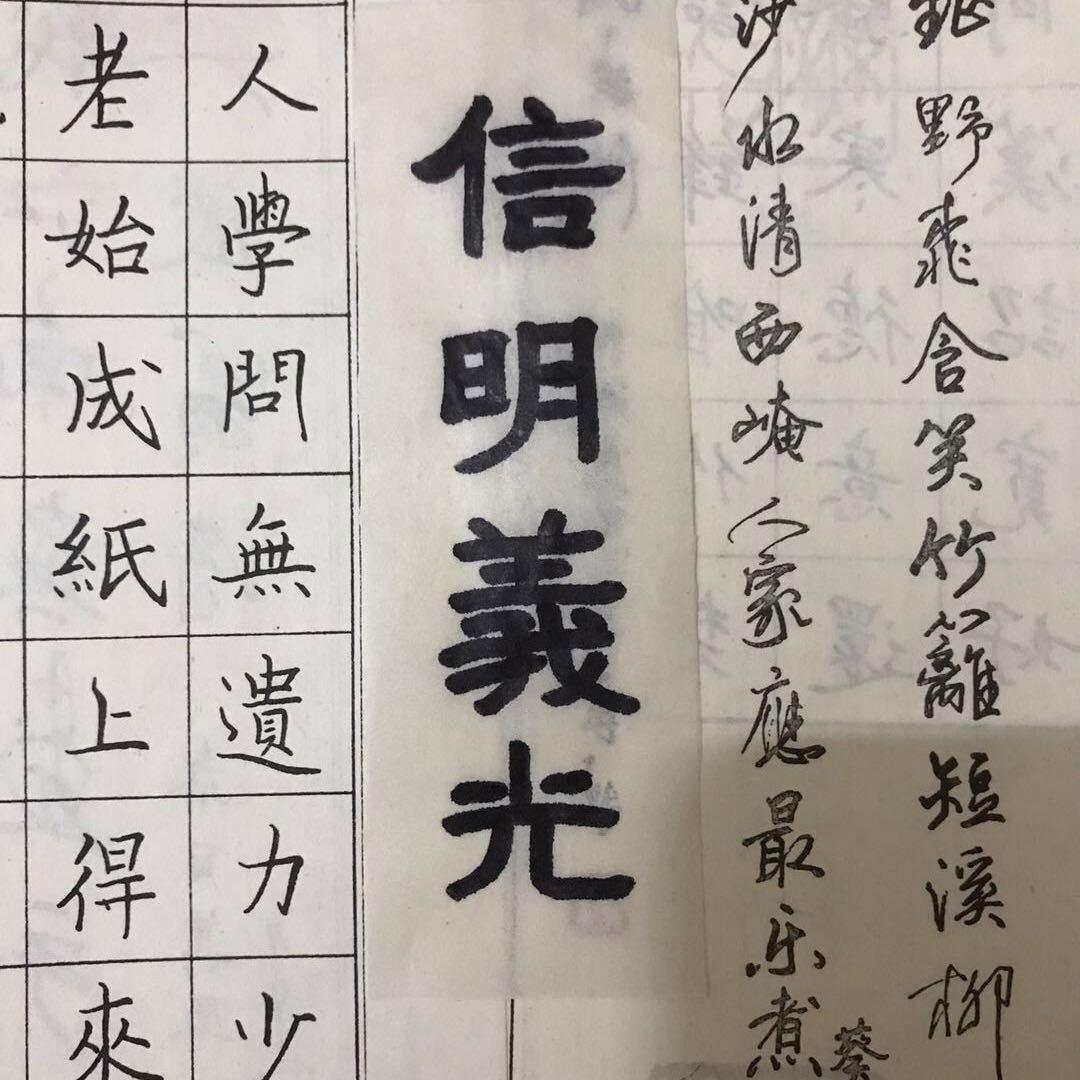 鉦野桃含笑竹籬短溪柳
沙水清西崦人家應最乐煮葵
信明義光
人學問無遺力少
老始成紙上得來